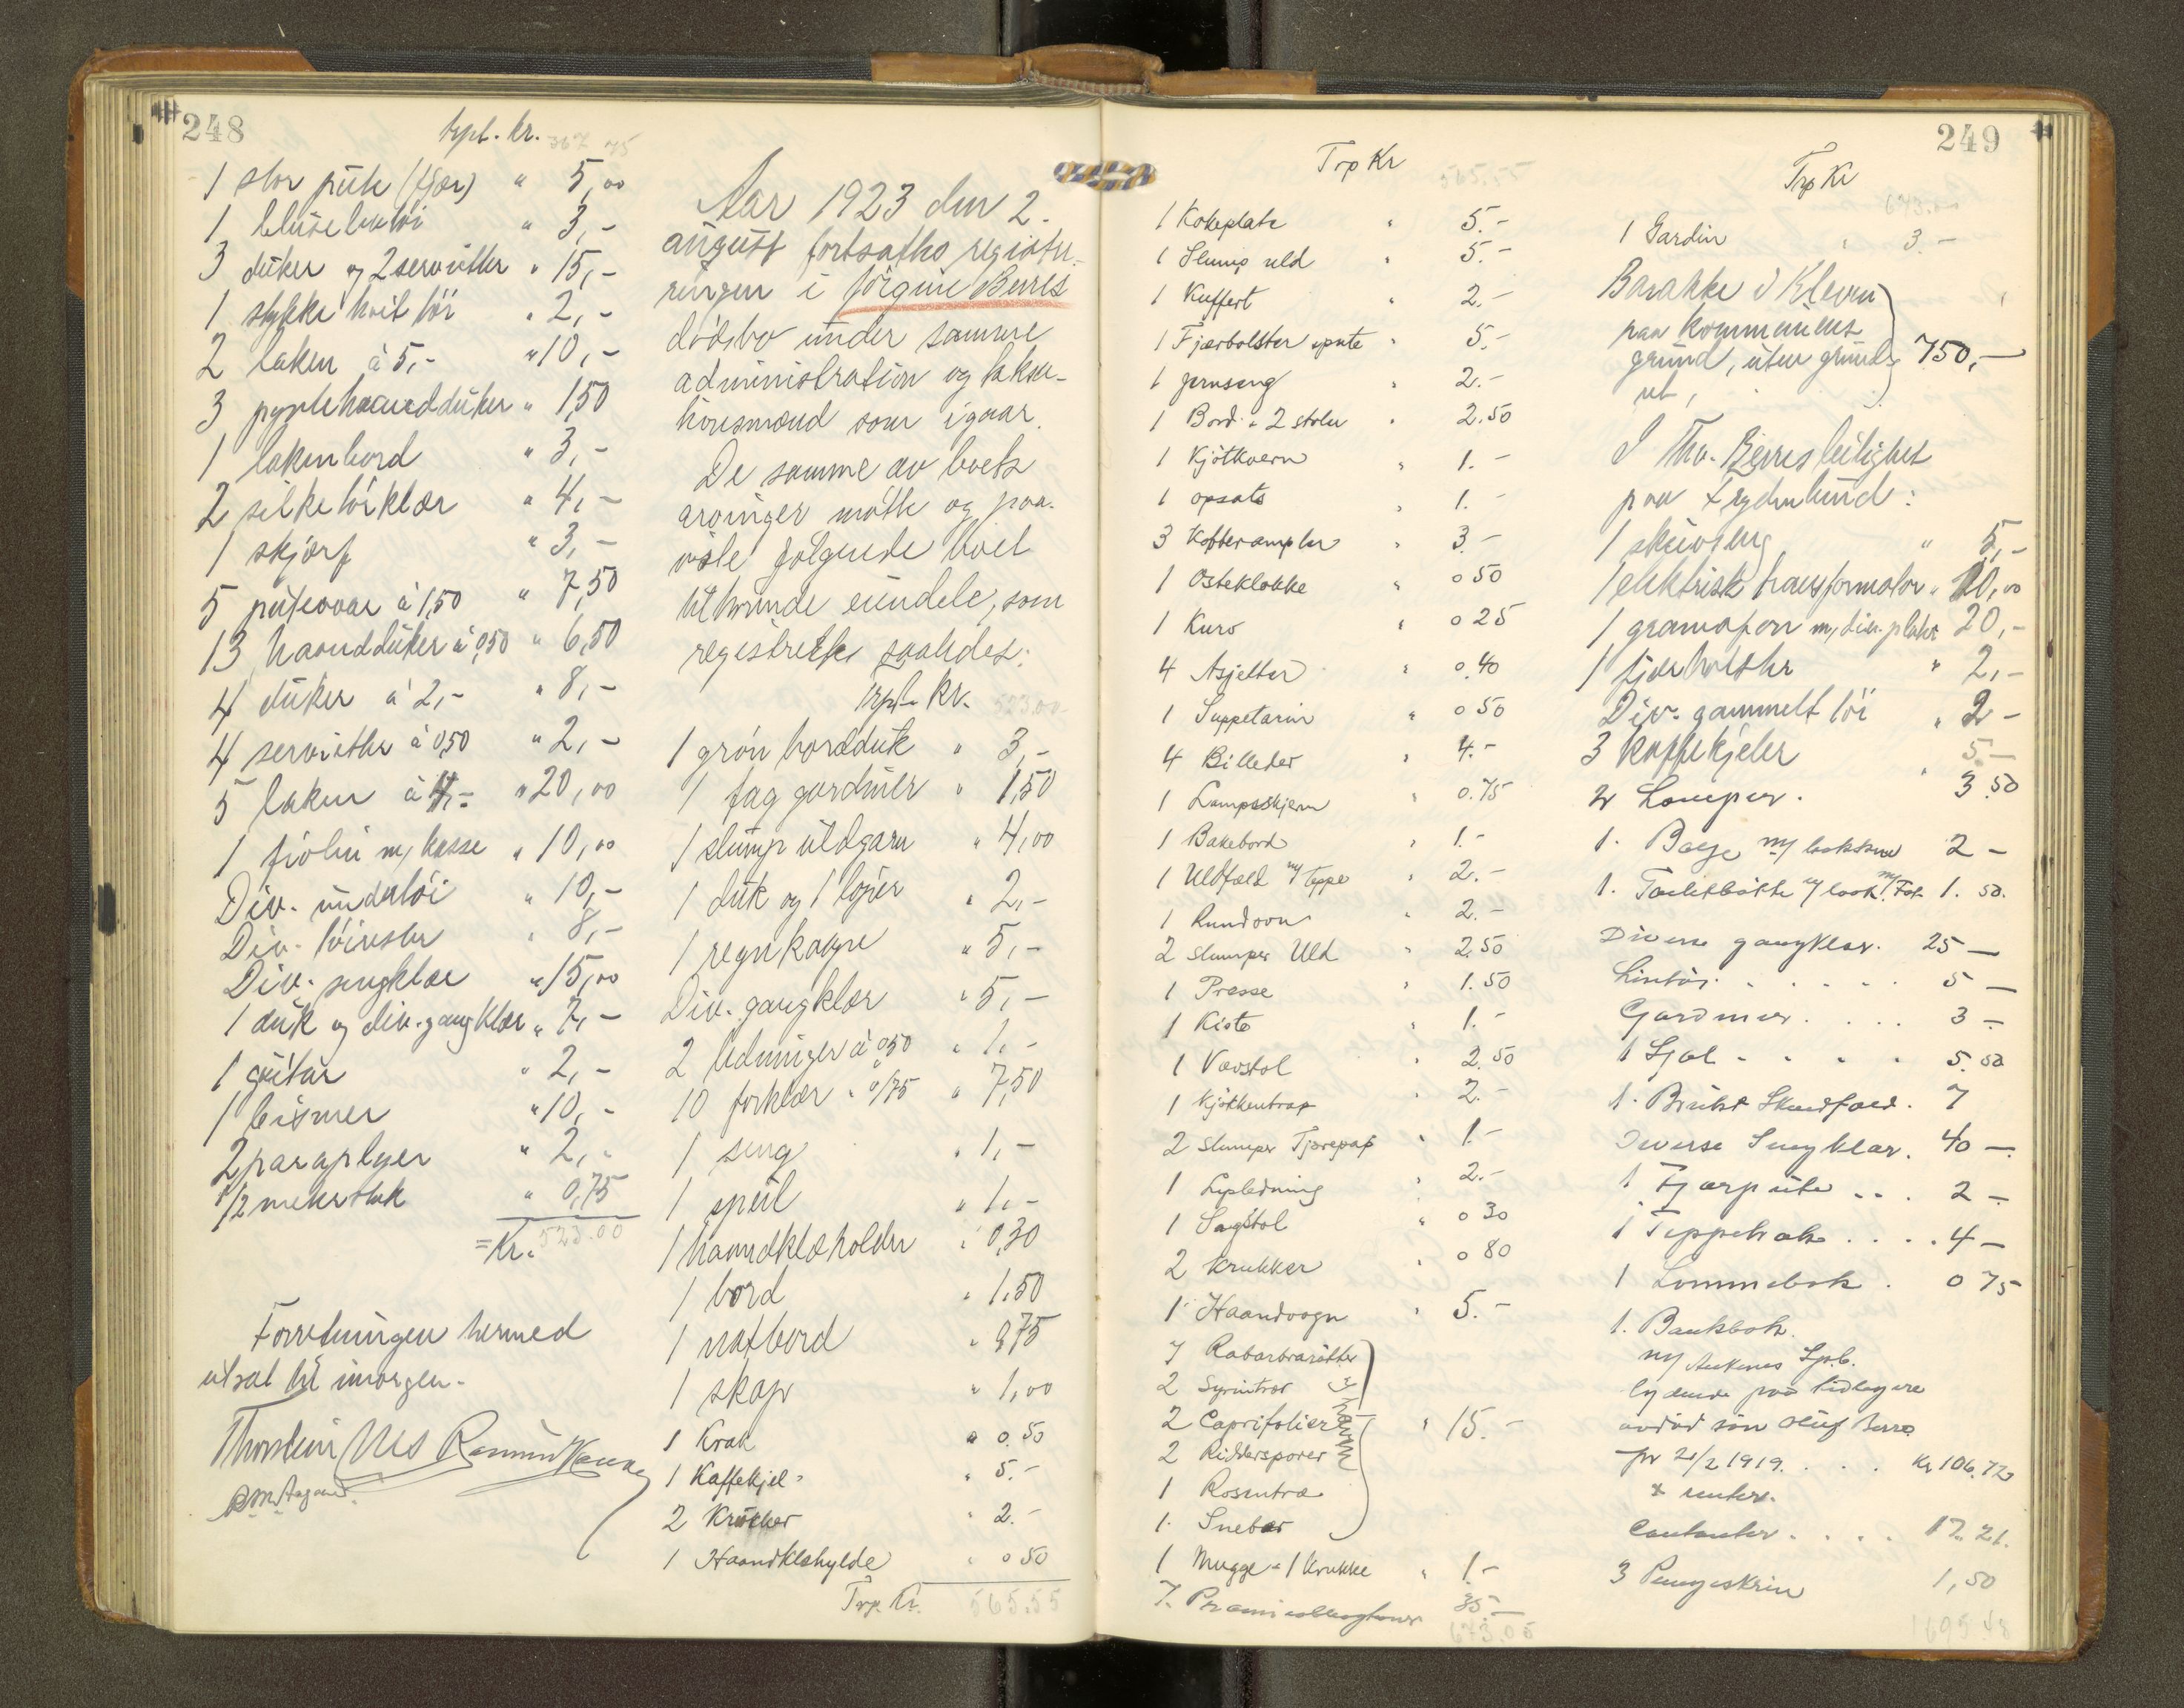 248
trpt. kr. 367 75
1 stor pute (fjær) " 5,00
1 bluselivtöi " 3,-
3 duker og 2 servietter " 15,-
1 stykke hvit töi " 2,-
2 laken à 5,- " 10,-
3 pyntehaandduker " 1,50
1 lakenbord " 3,-
2 silketörklær " 4,-
1 skjærf " 3,-
5 putevar à 1,50 " 7,50
13 haandduker à 0,50 " 6,50
4 duker à 2,- " 8,-
4 servietter à 0,50 " 2,-
5 laken à 4,- " 20,00
1 fiolin m/ kasse " 10,00
Div. undertöi " 10,-
Div. töirester " 8,-
Div. sengklær " 15,00
1 duk og div. gangklær " 7,-
1 guitar " 2,-
1 bismer " 10,-
2 paraplyer " 2,-
1/2 meterstok " 0,75
= Kr. 523.00
Forretningen hermed
utsat til imorgen.
Thorstein Nes
Aar 1923 den 2.
august fortsattes registre-
ringen i Jörgine Berres
dödsbo under samme
administration og takst-
hörsmænd som igaar.
De samme av boets
arvinger mötte og paa-
viste fölgende boet
tilhörende eiendele, som
registrertes saaledes:
Trpt. kr. 523.00
1 grön bordduk " 3,-
1 fag gardiner " 1,50
1 slump uldgarn " 4,00
1 duk og 1 löper " 2,-
1 regnkaape " 5,-
Div. gangklær " 5,-
2 ledninger à 0,50 " 1,-
10 forklær " 0/75 " 7,50
1 seng " 1,-
1 speil " 1,-
1 haandklæholder " 0,30
1 bord " 1,50
1 natbord " 0,75
1 skap " 1,00
1 Krak " 0.50
1 Kaffekjel " 5.-
2 Krukker " 2.-
1 Haandklshylde " 0 50
Trp. Kr. 565.55
249
Trp Kr 565.55
1 Kokeplate " 5.-
1 Slump uld " 5.-
1 Kuffert " 2.-
1 Fjærbolster + pute " 5.-
1 jernseng " 2.-
1 Bord + 2 stoler " 2.50
1 Kjötkvern " 1.-
1 opsats " 1.-
3 Kobberampler " 3.-
1 Osteklokke " 0 50
1 Kurv " 0 25
4 Asjetter " 0.40
1 Suppeterin " 0 50
4 Billeder " 4.-
1 Lampeskjerm " 0.75
1 Bakebord " 1.-
1 Uldfæld m/ teppe " 2.-
1 Rundovn " 2.-
2 slumper Uld " 2.50
1 Presse " 1.50
1 Kiste " 1.-
1 Vævstol " 2.50
1 Kjökkentrap " 2.-
2 slumper Tjærepap " 1.-
1 Lysledning " 2.-
1 Sagstol " 0 30
2 Krukker " 0 80
1 Haandvogn " 5.-
7 Rabarbrarötter
2 Syrintrær
2 Caprifolier " 15.-
2 Riddersporer
1 Rosentræ
1 Snebær
1 Mugge + 1 Krukke " 1.-
7. Præmieobligationer 35.-
673.00
Trp Kr
673.00
1 Gardin " 3.-
Barakke i Kleven
paa kommunens
grund, uten grund- 750,-
ret,
I Thv. Berres leilighet
paa Frydenlund:
1 skuvseng " 5,-
1 elektrisk transformator " 10,00
1 gramofon m/ div. plater 20,-
1 fjærbolster " 2,-
Div. gammelt töi " 2-
3 kaffekjeler " 5.-
2 Lamper. 3.50
1. Balje m/ 2-
1. 1.50.
Diverse gangklær. 25-
Lintöi. . . . . 5-
Gardiner. . . . 3-
1 Sjal . . . . 5.50
1. Brukt Skindfæld. 7
Diverse Sengklær. 40-
1 Fjærpute . . . 2-
1 . . . . 4-
1 Lommebok . 0 75
1. Bankbok
m/ Ankenes Spb.
lydende paa tidligere
avdöd sön Oluf Berre
pr 2/2 1919. . . . Kr 106.72
+ renter.
Contanter. . . . 17.21.
3 Pengeskrin 1,50
1695.48